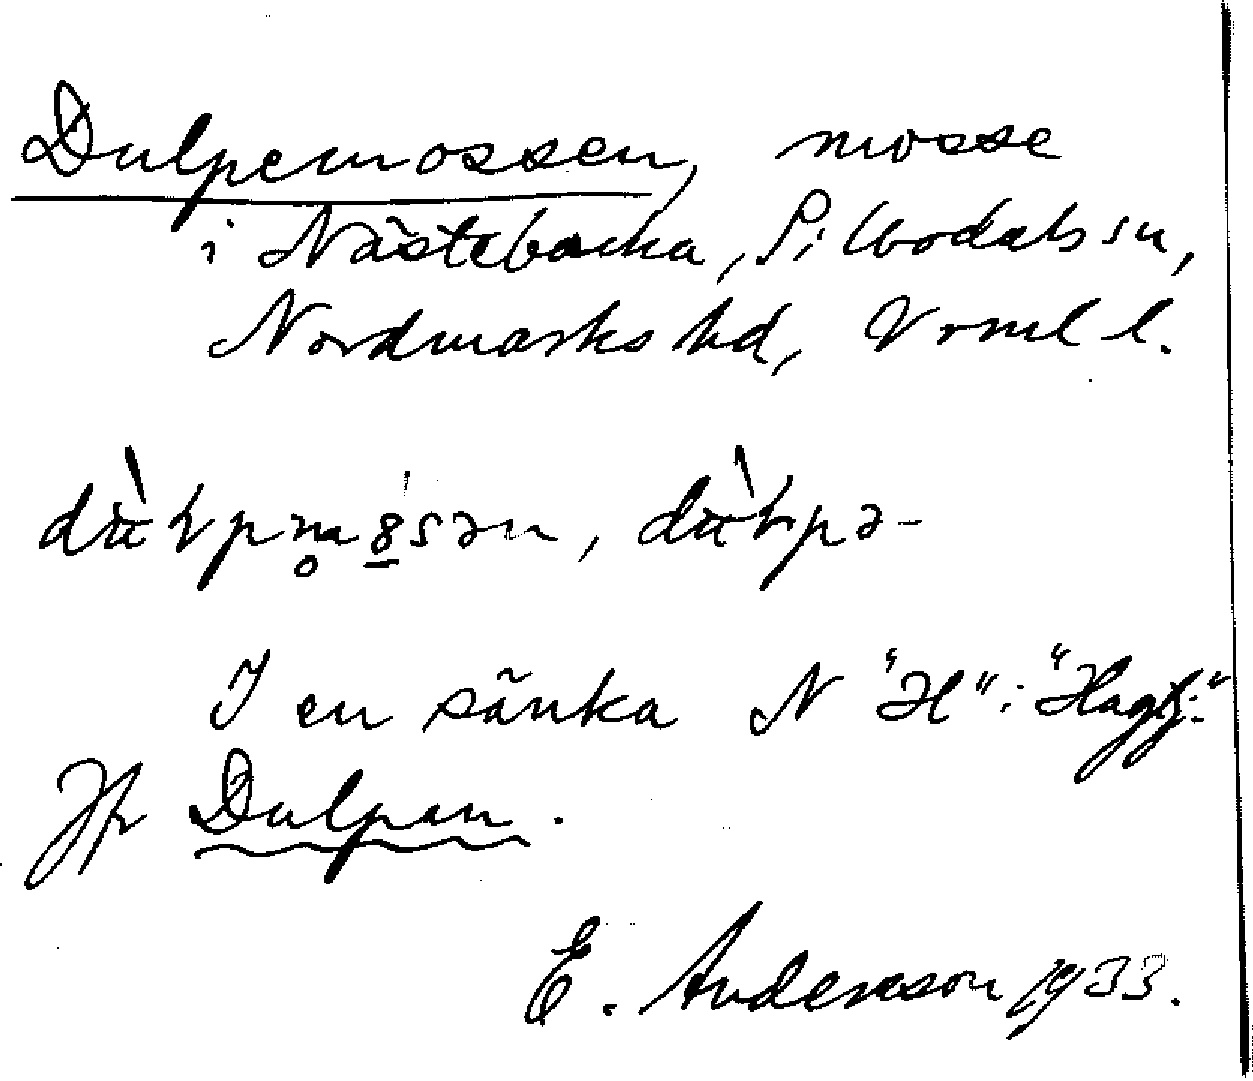 Dulpemossen, mosse
i Nästebacka, Silbodals sn,
Nordmarks hd, Vrml l.
I en sänka N "H" i "Hagbj:"
Jfr Dulpan.
E. Andersson 1933.